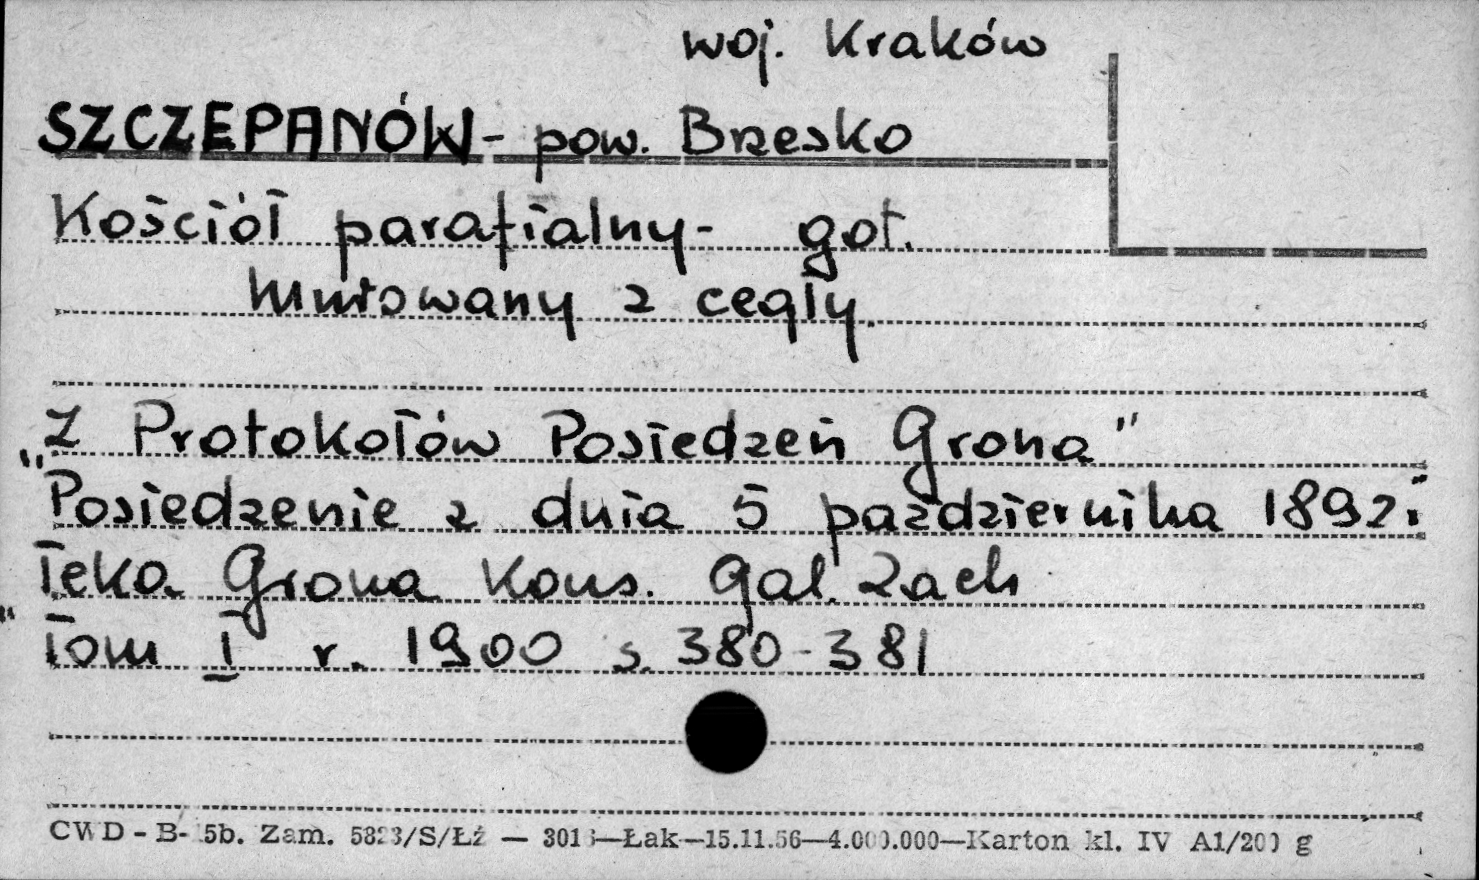 woj. Kraków
SZCZEPANÓW - pow. Brzesko
Kościół parafialny - got.
Murowany z cegły.
„Z Protokołów Posiedzeń Grona"
Posiedzenie z dnia 5 października 1892 r.
"Teka Grona Kons. Gal. Zach
Tom I r. 1900 s. 380-381
CWD - B- 5b. Zam. 5823/S/Łź — 3016—Łak—15.11.56—4.000.000—Karton kl. IV A1/200 g